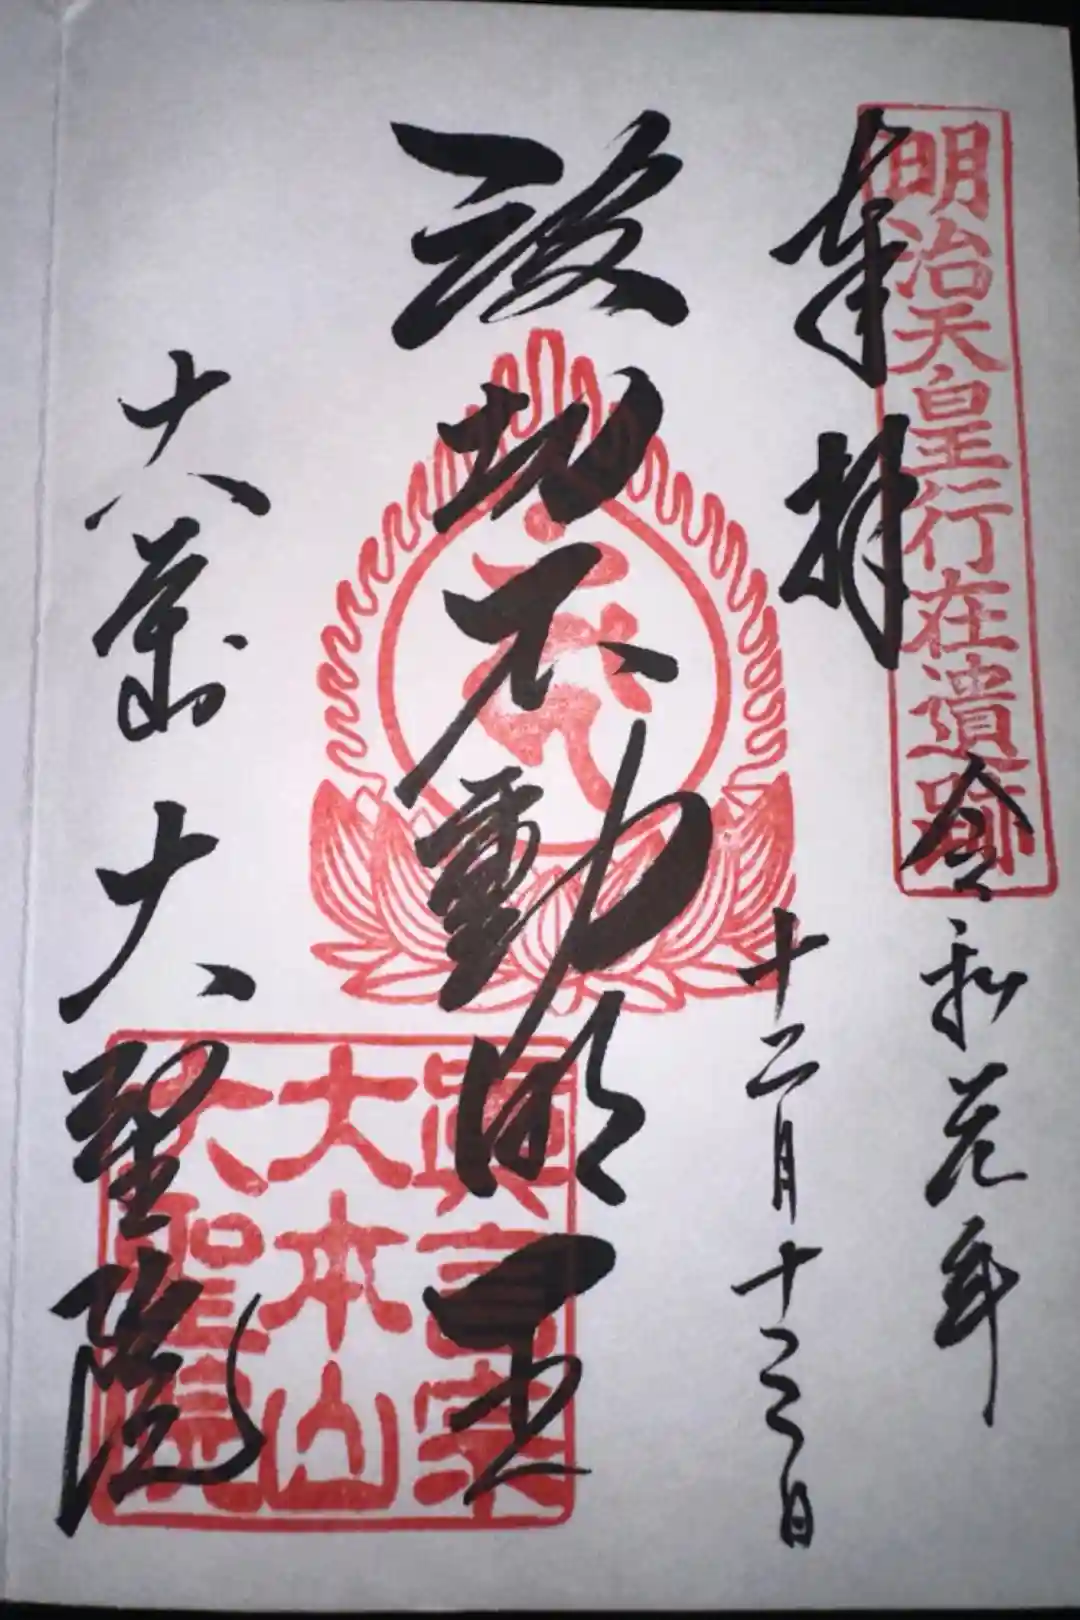 明治天皇行在遺跡
奉拝
令和元年
十二月十 日
波切不動明王
大本山大聖院
眞言宗
大本山
大聖院